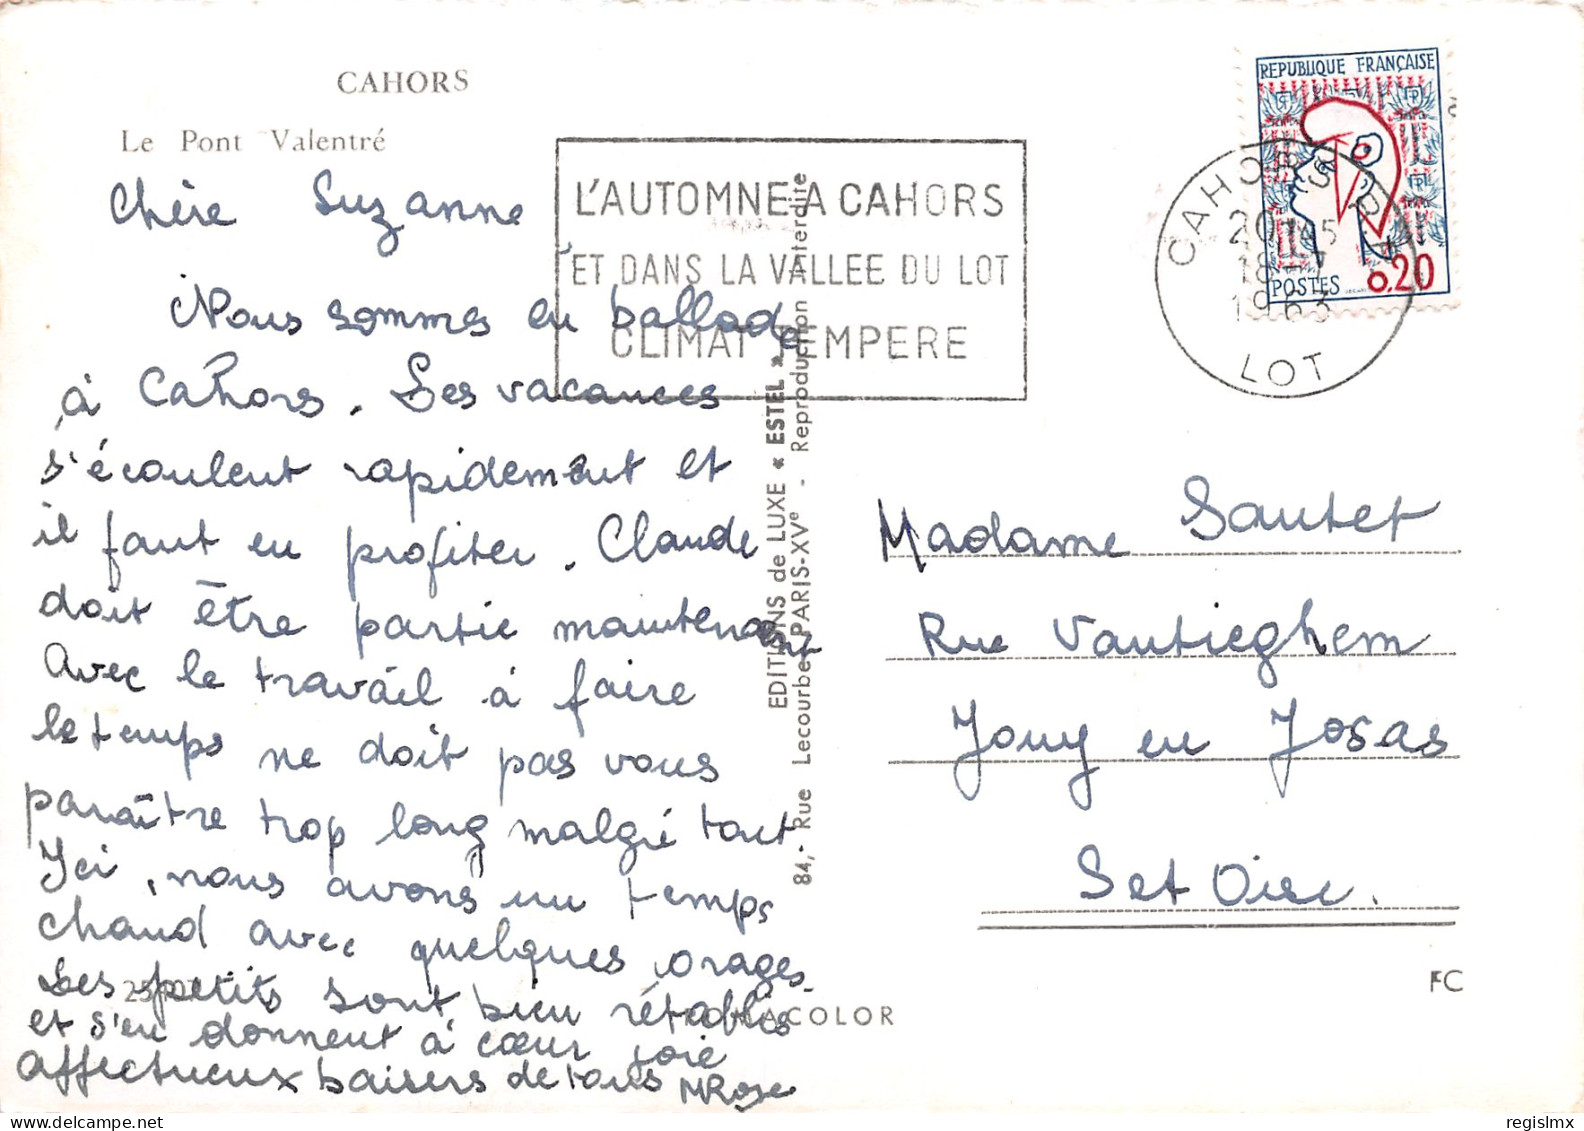 CAHORS
Le Pont Valentré
Chère Suzanne
Nous sommes en ballade
à Cahors. Les vacances
s'écoulent rapidement et
il faut en profiter. Claude
doit être partie maintenant
Avec le travail à faire
le temps ne doit pas vous
paraître trop long malgré tout
Ici, nous avons un temps
chaud avec quelques orages.
Les petits sont bien rétablis
et s'en donnent à cœur joie
affectueux baisers de tous MRose
L'AUTOMNE A CAHORS
ET DANS LA VALLEE DU LOT
CLIMAT TEMPERE
EDITIONS de LUXE « ESTEL »
84, Rue Lecourbe, PARIS-XVe - Reproduction interdite
REPUBLIQUE FRANÇAISE
POSTES 0,20
CAHORS R.P.
20H45
18-7
1963
LOT
Madame Sautet
Rue Vantieghem
Jouy en Josas
Set Oise.
COLOR
FC
regislmx